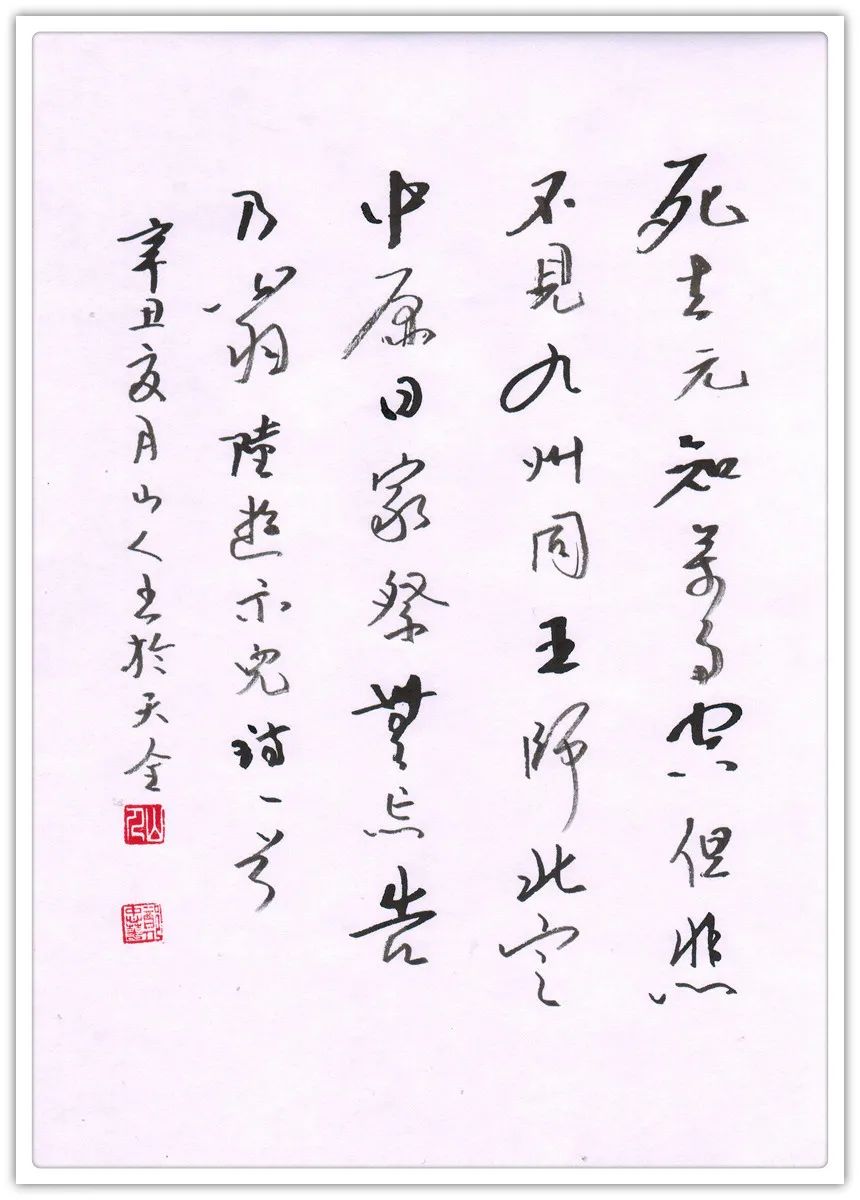 死去元知萬事空但悲
不見九州同王師北定
中原日家祭無忘告
乃翁陸遊示兒詩一首
辛丑亥月山人書於天全
山人